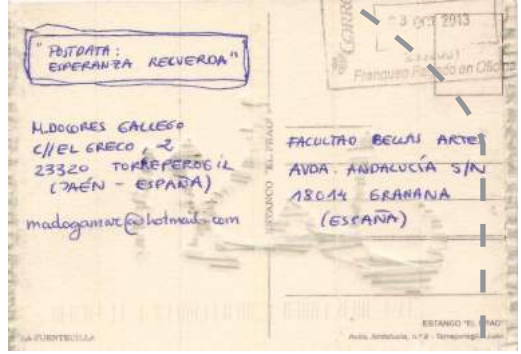 "POSTDATA:
ESPERANZA RECUERDA"
M.DOLORES GALLEGO
C//EL GRECO, 2
23320 TORREPEROGIL
(JAÉN - ESPAÑA)
madogamar@hotmail.com
CORREO
3 2013
Franqueo Pagado en Oficina
FACULTAD BELLAS ARTES
AVDA. ANDALUCÍA S/N
18014 GRANANA
(ESPAÑA)
ESTANCO "EL PRAO"
LA FUENTECILLA
ESTANCO "EL PRAO"
Avda. Andalucía, n.º 9 - Torreperogil